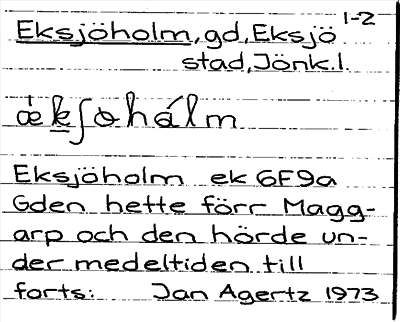 1-2
Eksjöholm, gd, Eksjö
stad, Jönk.l.
æ̀kʃohálm
Eksjöholm ek 6F9a
Gden hette förr Magg-
arp och den hörde un-
der medeltiden till
forts: Jan Agertz 1973